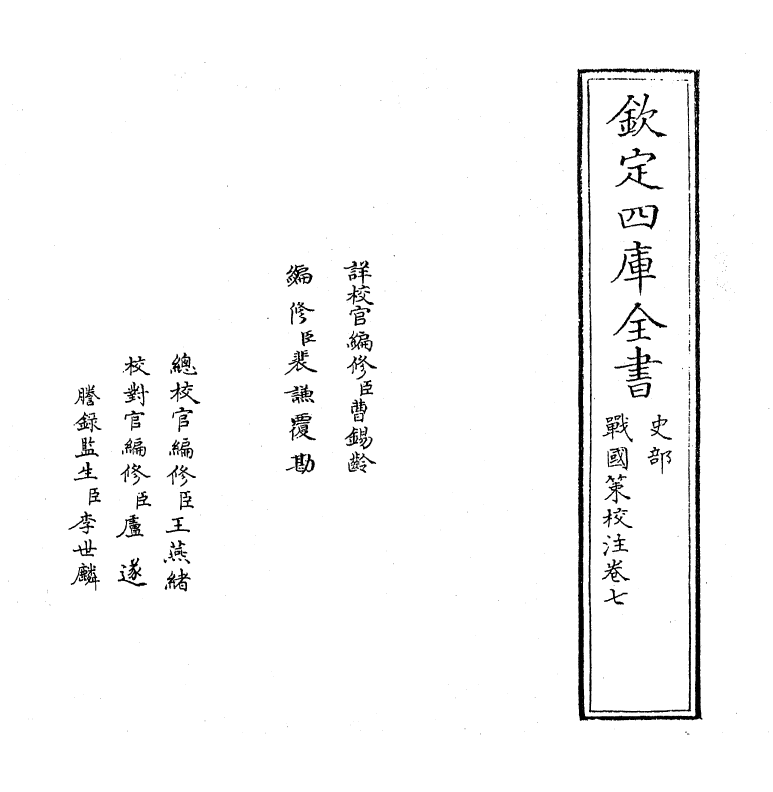 欽定四庫全書
史部
戰國策校注卷七
詳校官編修臣曹錫齡
編修臣裴謙覆勘
總校官編修臣王燕緒
校對官編修臣盧遂
謄錄監生臣李世麟